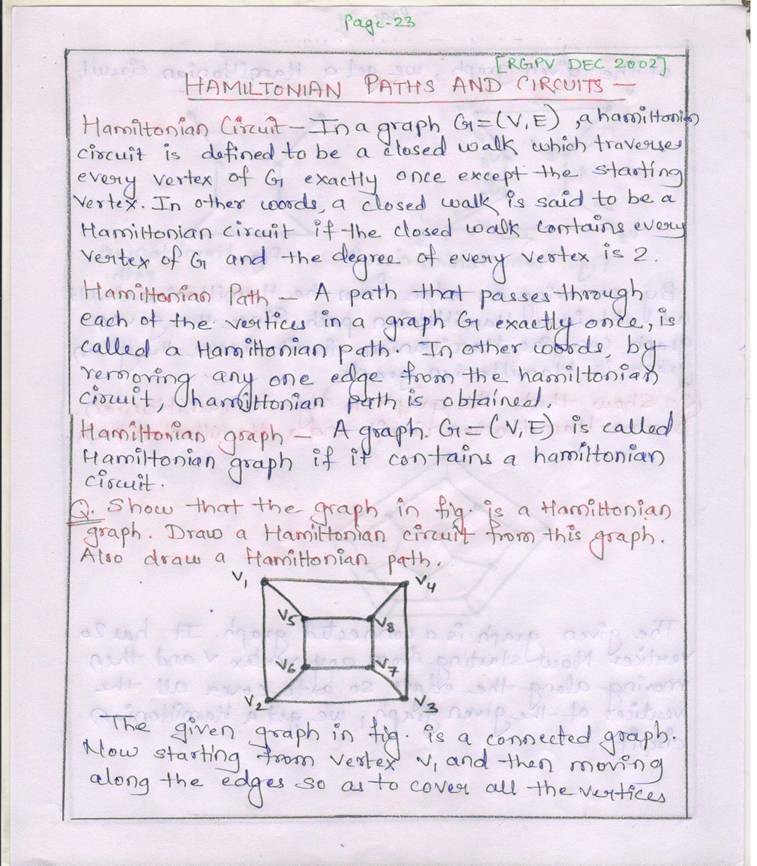 Page-23
[RGPV DEC 2002]
HAMILTONIAN PATHS AND CIRCUITS -
Hamiltonian Circuit - In a graph G=(V,E), a hamiltonian
circuit is defined to be a closed walk which traverses
every vertex of G exactly once except the starting
vertex. In other words, a closed walk is said to be a
Hamiltonian circuit if the closed walk contains every
vertex of G and the degree of every vertex is 2.
Hamiltonian Path - A path that passes through
each of the vertices in a graph G exactly once, is
called a Hamiltonian path. In other words, by
removing any one edge from the hamiltonian
circuit, hamiltonian path is obtained.
Hamiltonian graph - A graph. G=(V,E) is called
Hamiltonian graph if it contains a hamiltonian
circuit.
Q. Show that the graph in fig. is a Hamiltonian
graph. Draw a Hamiltonian circuit from this graph.
Also draw a Hamiltonian path.
V1 V4
V5 V8
V6 V7
V2 V3
The given graph in fig. is a connected graph.
Now starting from vertex V1 and then moving
along the edges so as to cover all the vertices